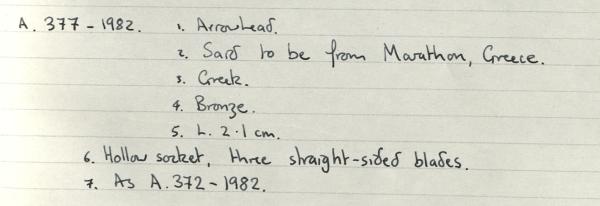 A. 377 - 1982. 1. Arrowhead.
2. Said to be from Marathon, Greece.
3. Greek.
4. Bronze.
5. L. 2·1 cm.
6. Hollow socket, three straight-sided blades.
7. As A. 372 - 1982.